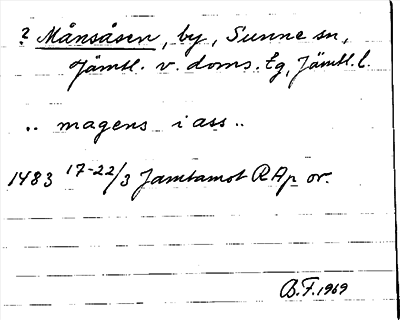 ? Månsåsen, by, Sunne sn,
Jämtl. v. doms. tg, Jämtl. l.
.. magens i ass ..
1483 17-22/3 Jamtamot RAp or.
B.F. 1969